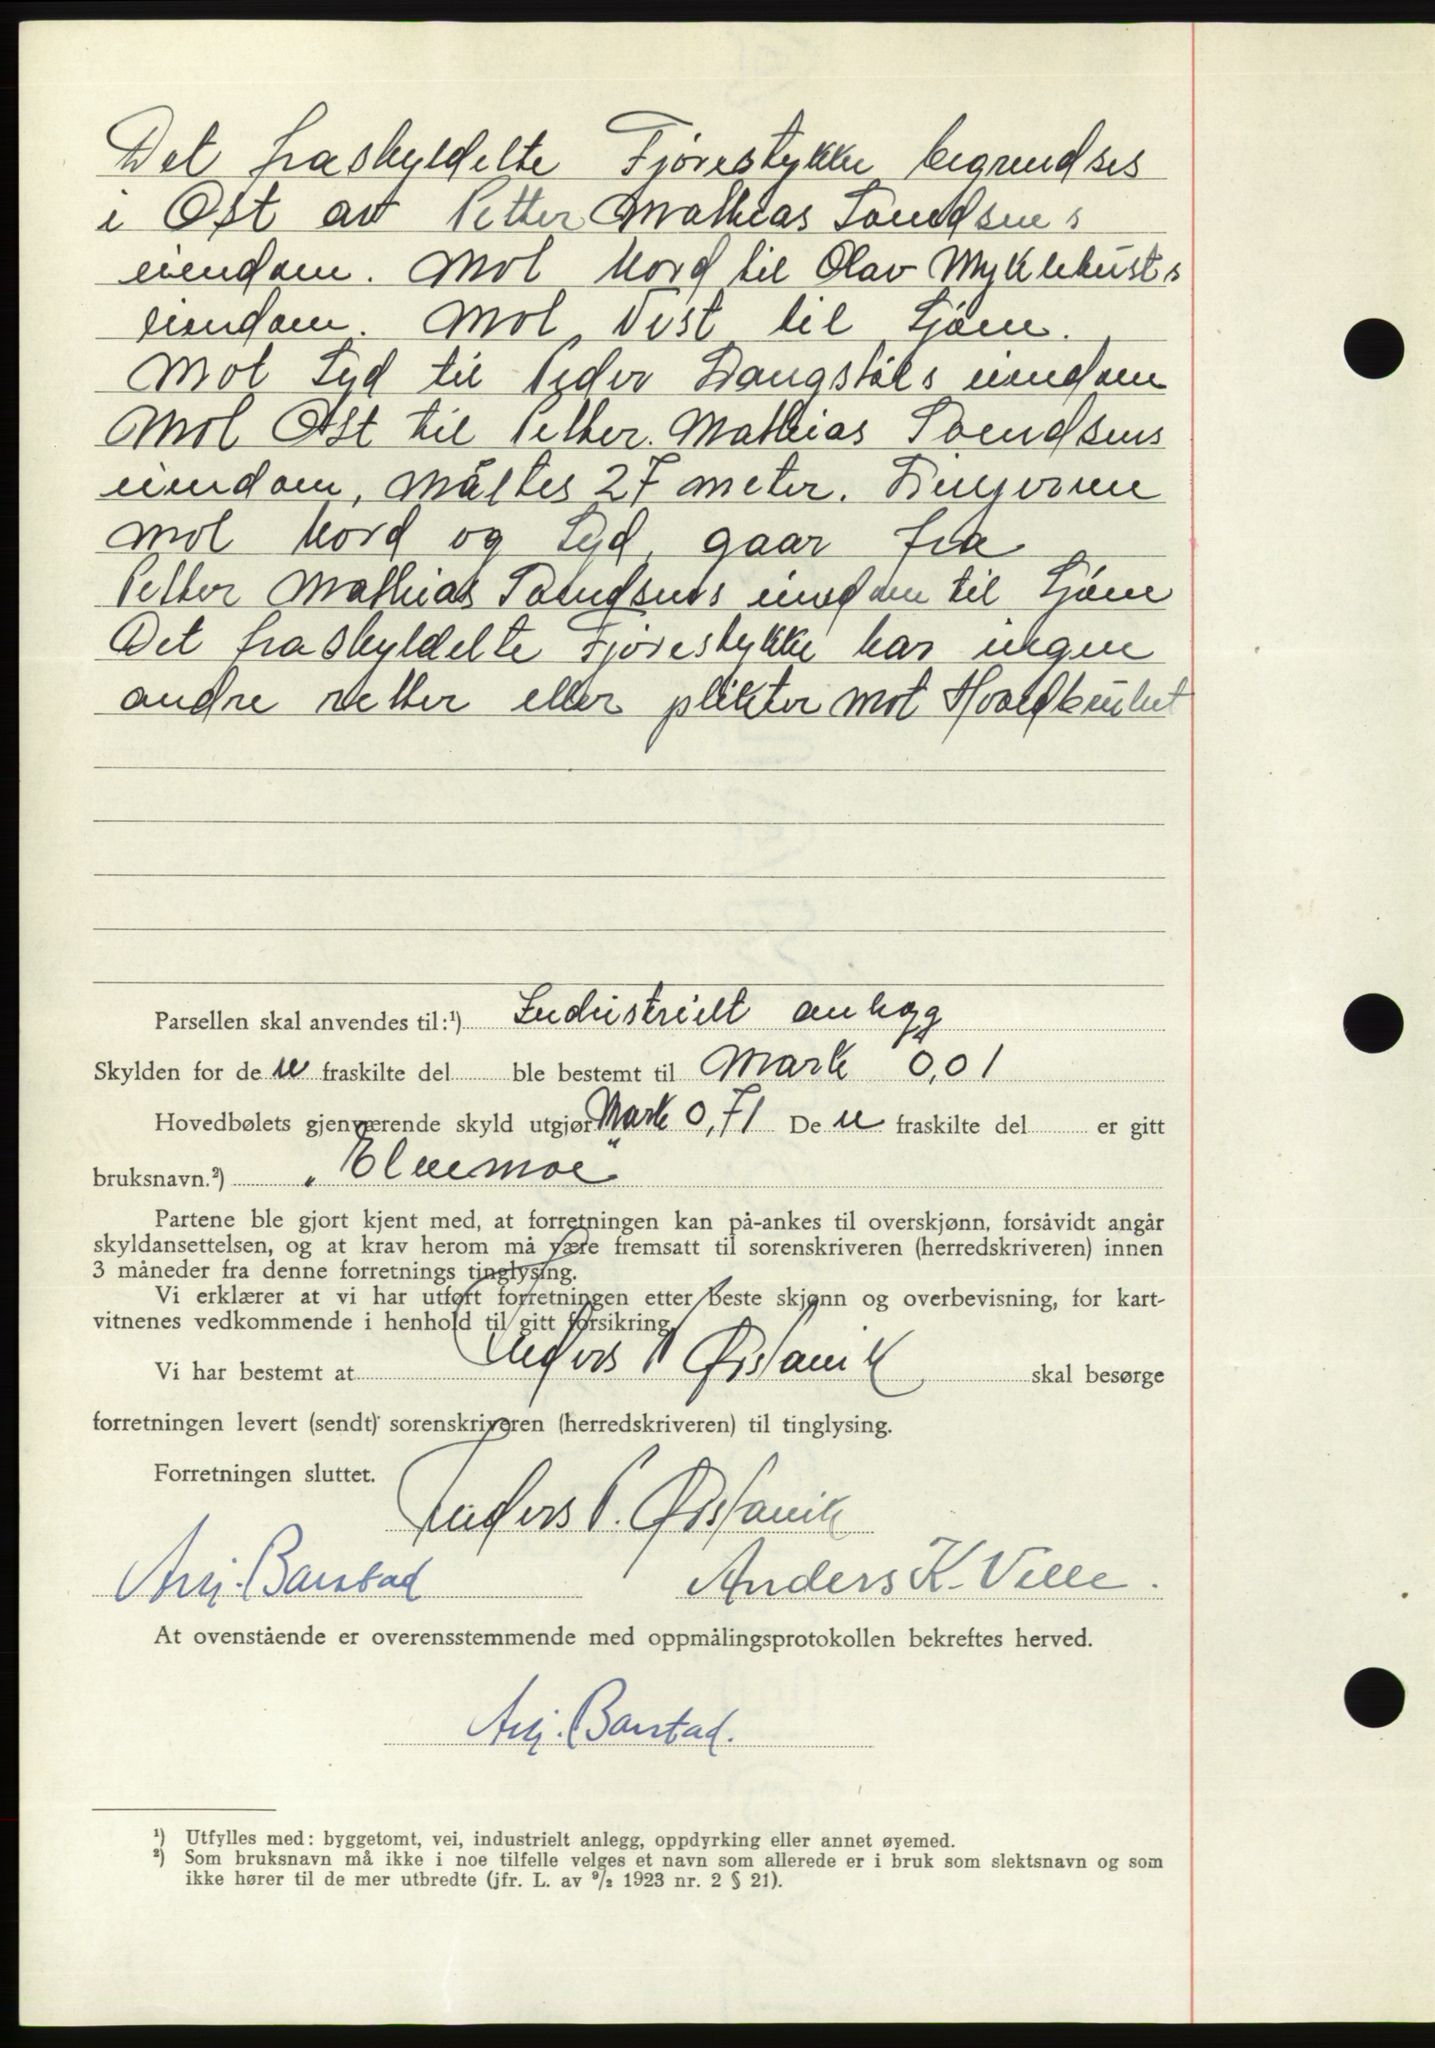 Det fraskyldelte Fjørestykke begrendses
i Øst av Petter Mathias Svendsens
eiendom. Mot Nord til Olav Myklebusts
eiendom. Mot Vest til Sjøen.
Mot Syd til Peder Langstøls eiendom
Mot Øst til Petter Mathias Svendsens
eiendom, måltes 27 meter. Linjerne
mot Nord og Syd, gaar fra
Petter Mathias Svendsens eiendom til Sjøen
Det fraskyldelte Fjørestykke har ingen
andre retter eller plikter mot Hovedbruket
Parsellen skal anvendes til:¹) Industrielt anlegg
Skylden for de n fraskilte del ble bestemt til Mark 0,01
Hovedbølets gjenværende skyld utgjør Mark 0,71 De n fraskilte del er gitt
bruksnavn.²) „Elvemoe"
Partene ble gjort kjent med, at forretningen kan på-ankes til overskjønn, forsåvidt angår
skyldansettelsen, og at krav herom må være fremsatt til sorenskriveren (herredskriveren) innen
3 måneder fra denne forretnings tinglysing.
Vi erklærer at vi har utført forretningen etter beste skjønn og overbevisning, for kart-
vitnenes vedkommende i henhold til gitt forsikring.
Vi har bestemt at Anders P Ørstavik skal besørge
forretningen levert (sendt) sorenskriveren (herredskriveren) til tinglysing.
Forretningen sluttet.
Anders P. Ørstavik
Barstad Anders K. Velle.
At ovenstående er overensstemmende med oppmålingsprotokollen bekreftes herved.
Barstad.
¹) Utfylles med: byggetomt, vei, industrielt anlegg, oppdyrking eller annet øyemed.
²) Som bruksnavn må ikke i noe tilfelle velges et navn som allerede er i bruk som slektsnavn og som
ikke hører til de mer utbredte (jfr. L. av ⁹/₂ 1923 nr. 2 § 21).